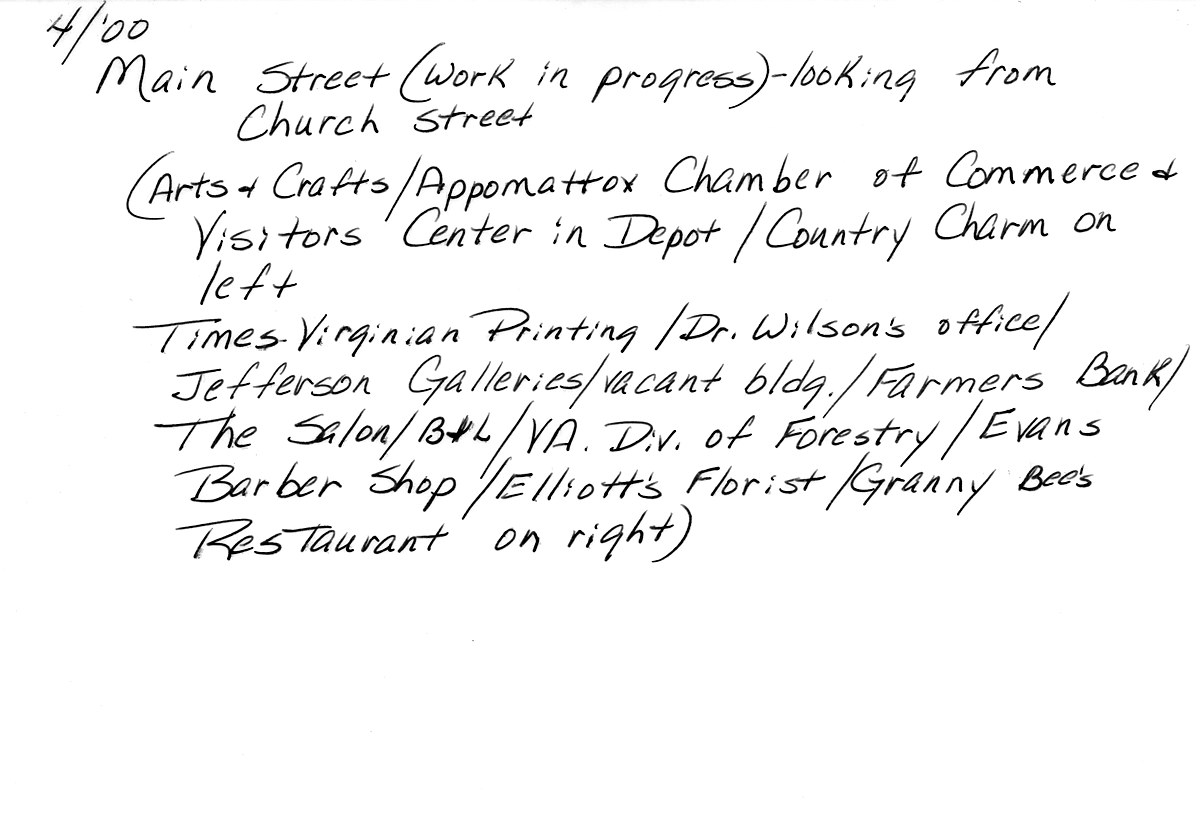 4/'00
Main Street (Work in progress)-looking from
Church Street
(Arts & Crafts/Appomattox Chamber of Commerce &
Visitors Center in Depot/Country Charm on
left
Times-Virginian Printing/Dr. Wilson's office/
Jefferson Galleries/vacant bldg./Farmers Bank/
The Salon/B&L/VA. Div. of Forestry/Evans
Barber Shop/Elliott's Florist/Granny Bee's
Restaurant on right)